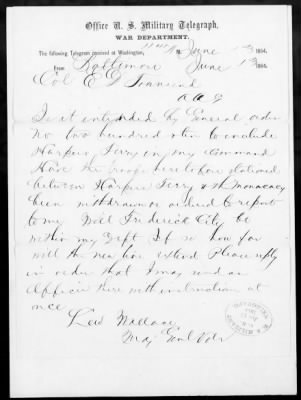 Office U. S. Military Telegraph,
WAR DEPARTMENT.
The following Telegram received at Washington, M. June 1st 1864.
From Baltimore June 1st 1864.
Col E D Townsend
A A G
Is it intended by General order
No two hundred & ten to include
Harpers Ferry in my command
Have the troops heretofore stationed
between Harpers Ferry & the Monocacy
been withdrawn or ordered to report
to me Will Frederick City be
within my Dept If so how far
will the new line extend Please reply
in order that I may send an
Officer there with instruction at
once
Lew Wallace
Maj Genl Vols